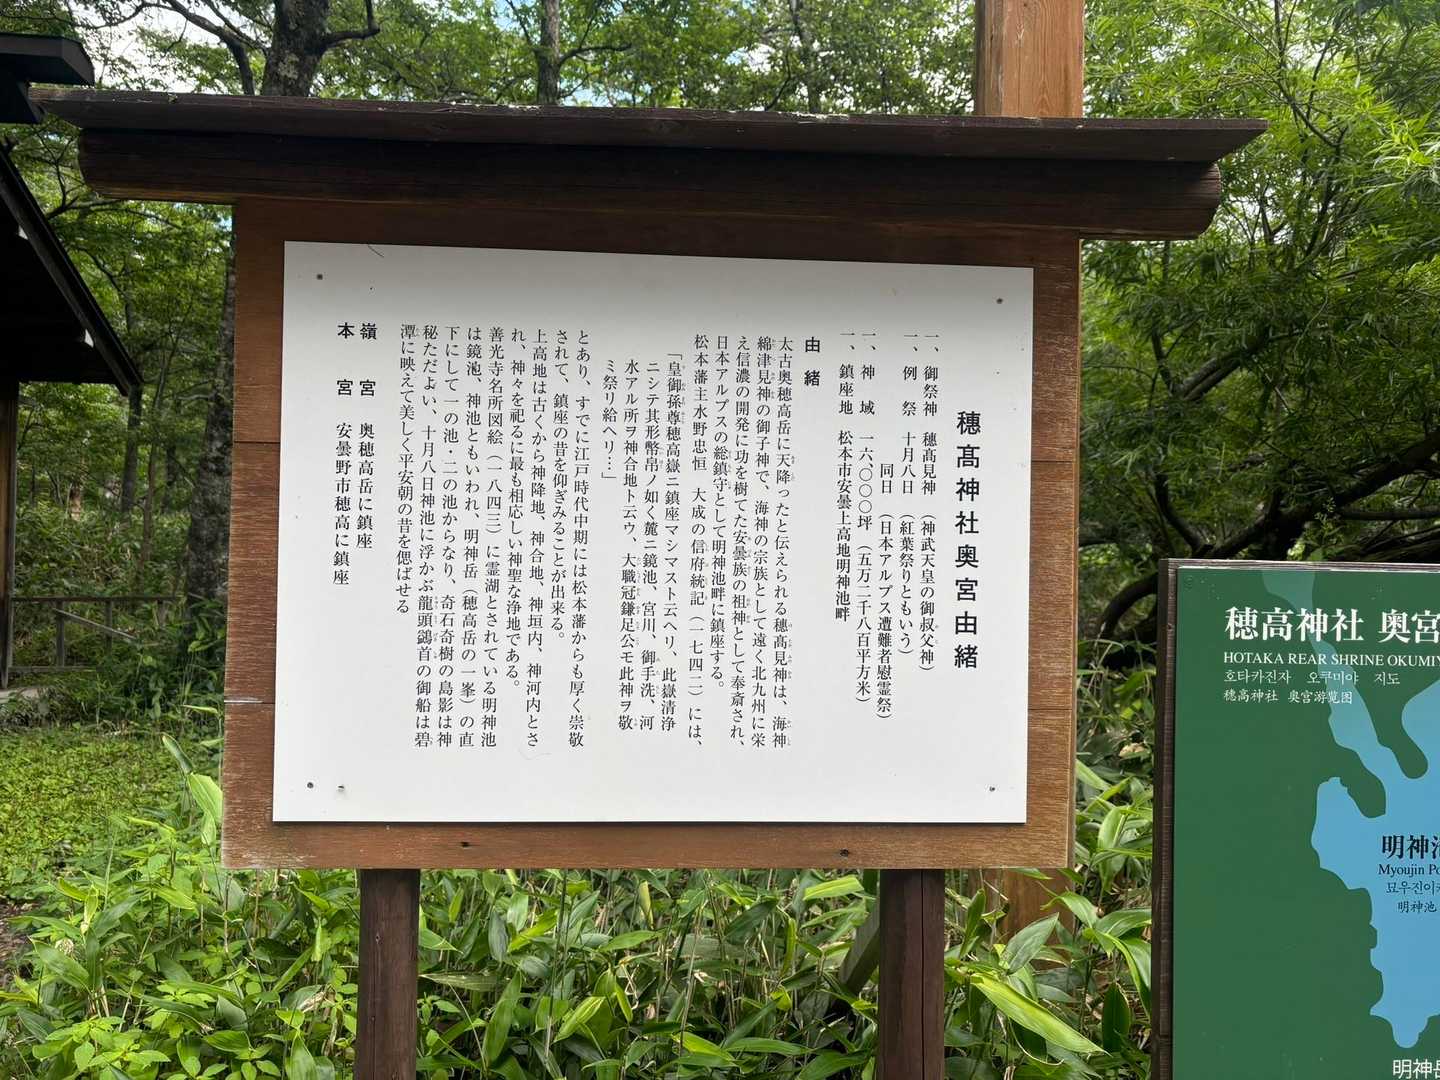 穗髙神社奥宮由緒
一、御祭神　穗髙見神　（神武天皇の御叔父神）
一、例　祭　十月八日　（紅葉祭りともいう）
同日　（日本アルプス遭難者慰霊祭）
一、神　域　一六、〇〇〇坪　（五万二千八百平方米）
一、鎮座地　松本市安曇上高地明神池畔
由　緒
太古奥穂高岳に天降ったと伝えられる穗髙見神は、海神
綿津見神の御子神で、海神の宗族として遠く北九州に栄
え信濃の開発に功を樹てた安曇族の祖神として奉斎され、
日本アルプスの総鎮守として明神池畔に鎮座する。
松本藩主水野忠恒　大成の信府統記（一七四二）には、
「皇御孫尊穂高嶽ニ鎮座マシマスト云ヘリ、此嶽清浄
ニシテ其形幣帛ノ如く麓ニ鏡池、宮川、御手洗、河
水アル所ヲ神合地ト云ウ、大職冠鎌足公モ此神ヲ敬
ミ祭リ給ヘリ…」
とあり、すでに江戸時代中期には松本藩からも厚く崇敬
されて、鎮座の昔を仰ぎみることが出来る。
上高地は古くから神降地、神合地、神垣内、神河内とさ
れ、神々を祀るに最も相応しい神聖な浄地である。
善光寺名所図絵（一八四三）に霊湖とされている明神池
は鏡池、神池ともいわれ、明神岳（穂高岳の一峯）の直
下にして一の池・二の池からなり、奇石奇樹の島影は神
秘ただよい、十月八日神池に浮かぶ龍頭鷁首の御船は碧
潭に映えて美しく平安朝の昔を偲ばせる
嶺　宮　奥穂高岳に鎮座
本　宮　安曇野市穂高に鎮座
穂高神社 奥宮
HOTAKA REAR SHRINE OKUMIY
호타카진자　오쿠미야　지도
穗高神社　奥宮游览图
明神
Myoujin Po
묘우진이케
明神池
明神岳